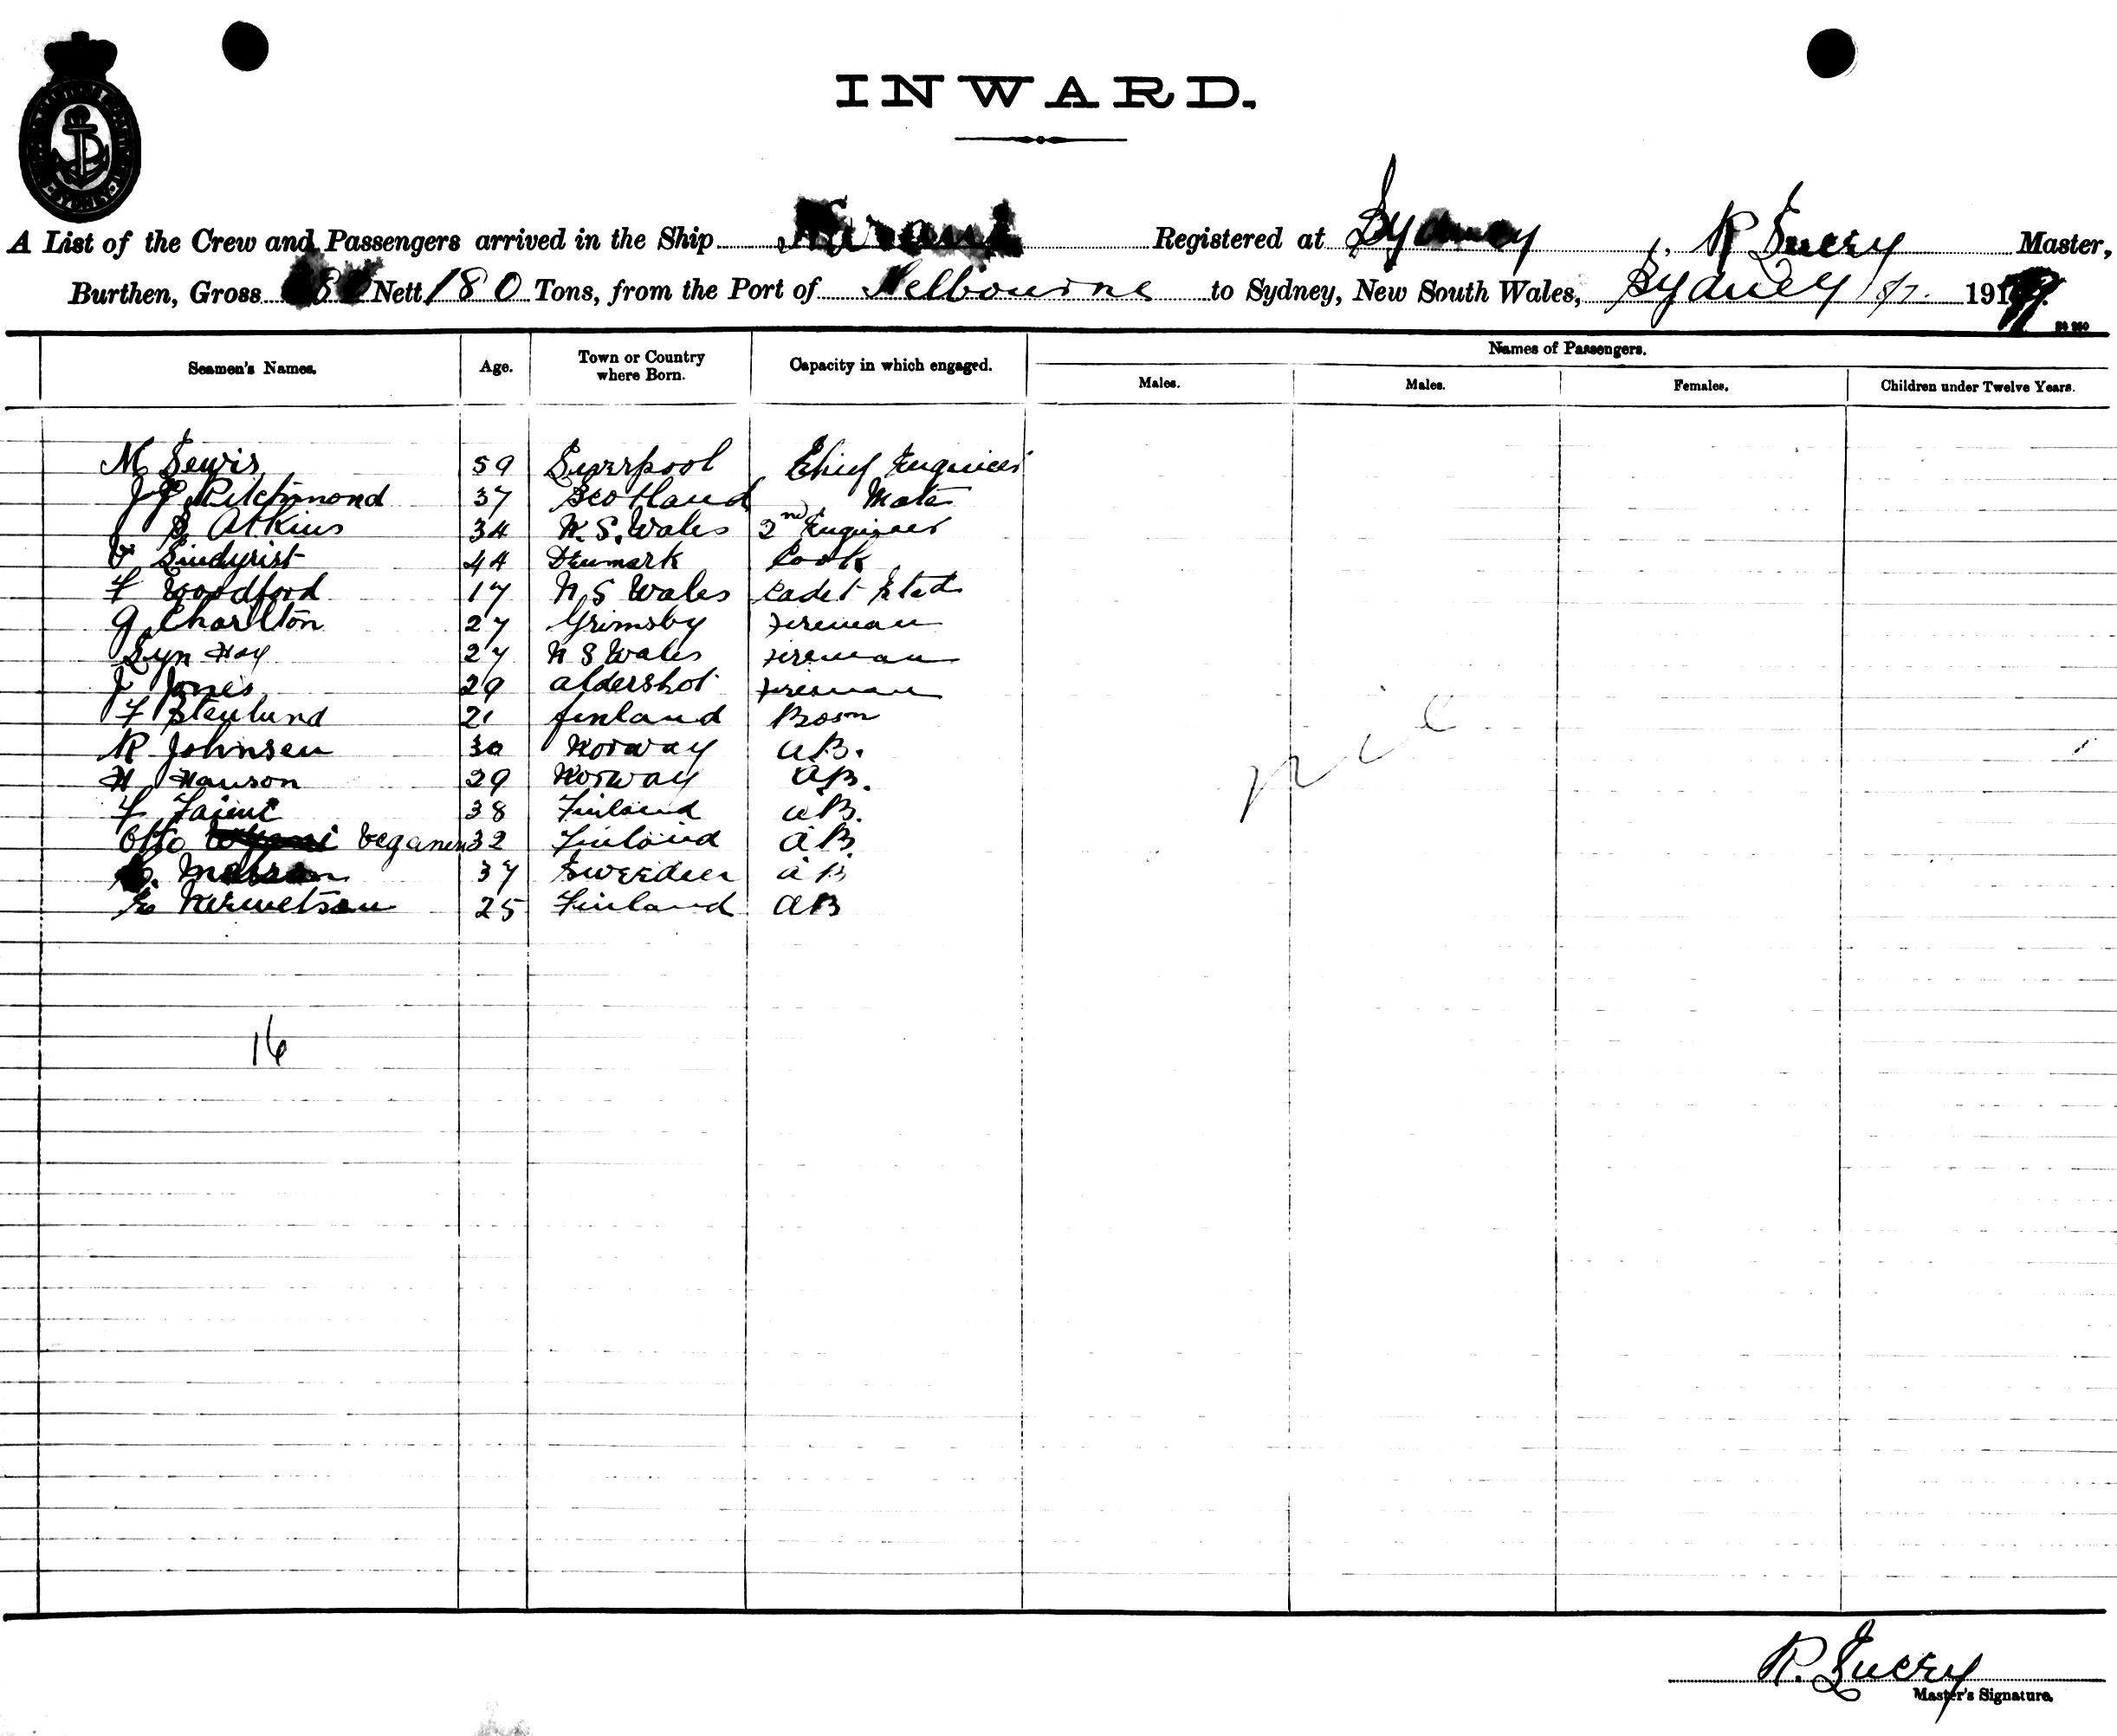 INWARD.
A List of the Crew and Passengers arrived in the Ship Registered at Sydney, R Master,
Burthen, Gross Nett 180 Tons, from the Port of Melbourne to Sydney, New South Wales, Sydney 191
Seamen's Names. Age. Town or Country where Born. Capacity in which engaged. Names of Passengers.
Males. Males. Females. Children under Twelve Years.
M Lewis 59 Liverpool Chief Engineer
Ritchmond 37 Scotland Mate
Atkins 34 N.S. Wales 2nd Engineer
44 Denmark Cook
F Woodford 17 N S Wales Cadet
G Charlton 27 Grimsby Fireman
Lyn Hoy 27 N S Wales Fireman
J Jones 29 aldershot Fireman
F Stenlund 21 finland Bosn
R Johnsen 30 Norway AB.
H Hanson 29 Norway AB.
F 38 Finland AB.
Otto Veganen 32 Finland AB
37 Sweeden AB
25 Finland AB
nil
16
R.
Master's Signature.